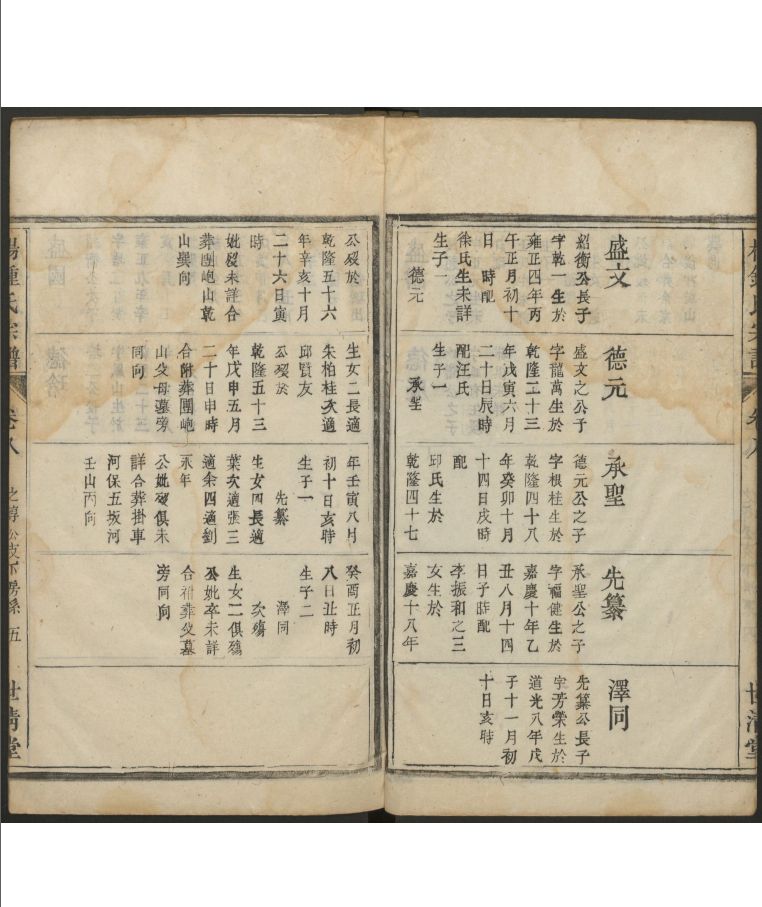 盛文
紹衡公長子
字乾一生於
雍正四年丙
午正月初十
日 時配
徐氏生未詳
生子一
德元
德元
盛文之公子
字龍萬生於
乾隆二十三
年戊寅六月
二十日辰時
配汪氏
生子一
承聖
承聖
德元公之子
字根桂生於
乾隆四十八
年癸卯十月
十四日戌時
配
邱氏生於
乾隆四十七
先纂
承聖公之子
字福健生於
嘉慶十年乙
丑八月十四
日子時配
李振和之三
女生於
嘉慶十八年
澤同
先纂公長子
字芳榮生於
道光八年戊
子十一月初
十日亥時
公歿於
乾隆五十六
年辛亥十月
二十六日寅
時
妣歿未詳合
葬團皰山乾
山巽向
生女二長適
朱柏桂次適
邱賢友
公歿於
乾隆五十三
年戊申五月
二十日申時
合附葬團皰
山父母墓旁
同向
年壬寅八月
初十日亥時
生子一
先纂
生女四長適
葉次適張三
適余四適劉
永年
公妣歿俱未
詳合葬掛車
河保五坂河
壬山丙向
癸酉正月初
八日丑時
生子二
澤同
次殤
生女二俱殤
公妣卒未詳
合祔葬父墓
旁同向
鍾氏宗譜
卷八
公支下房系 五
世清堂